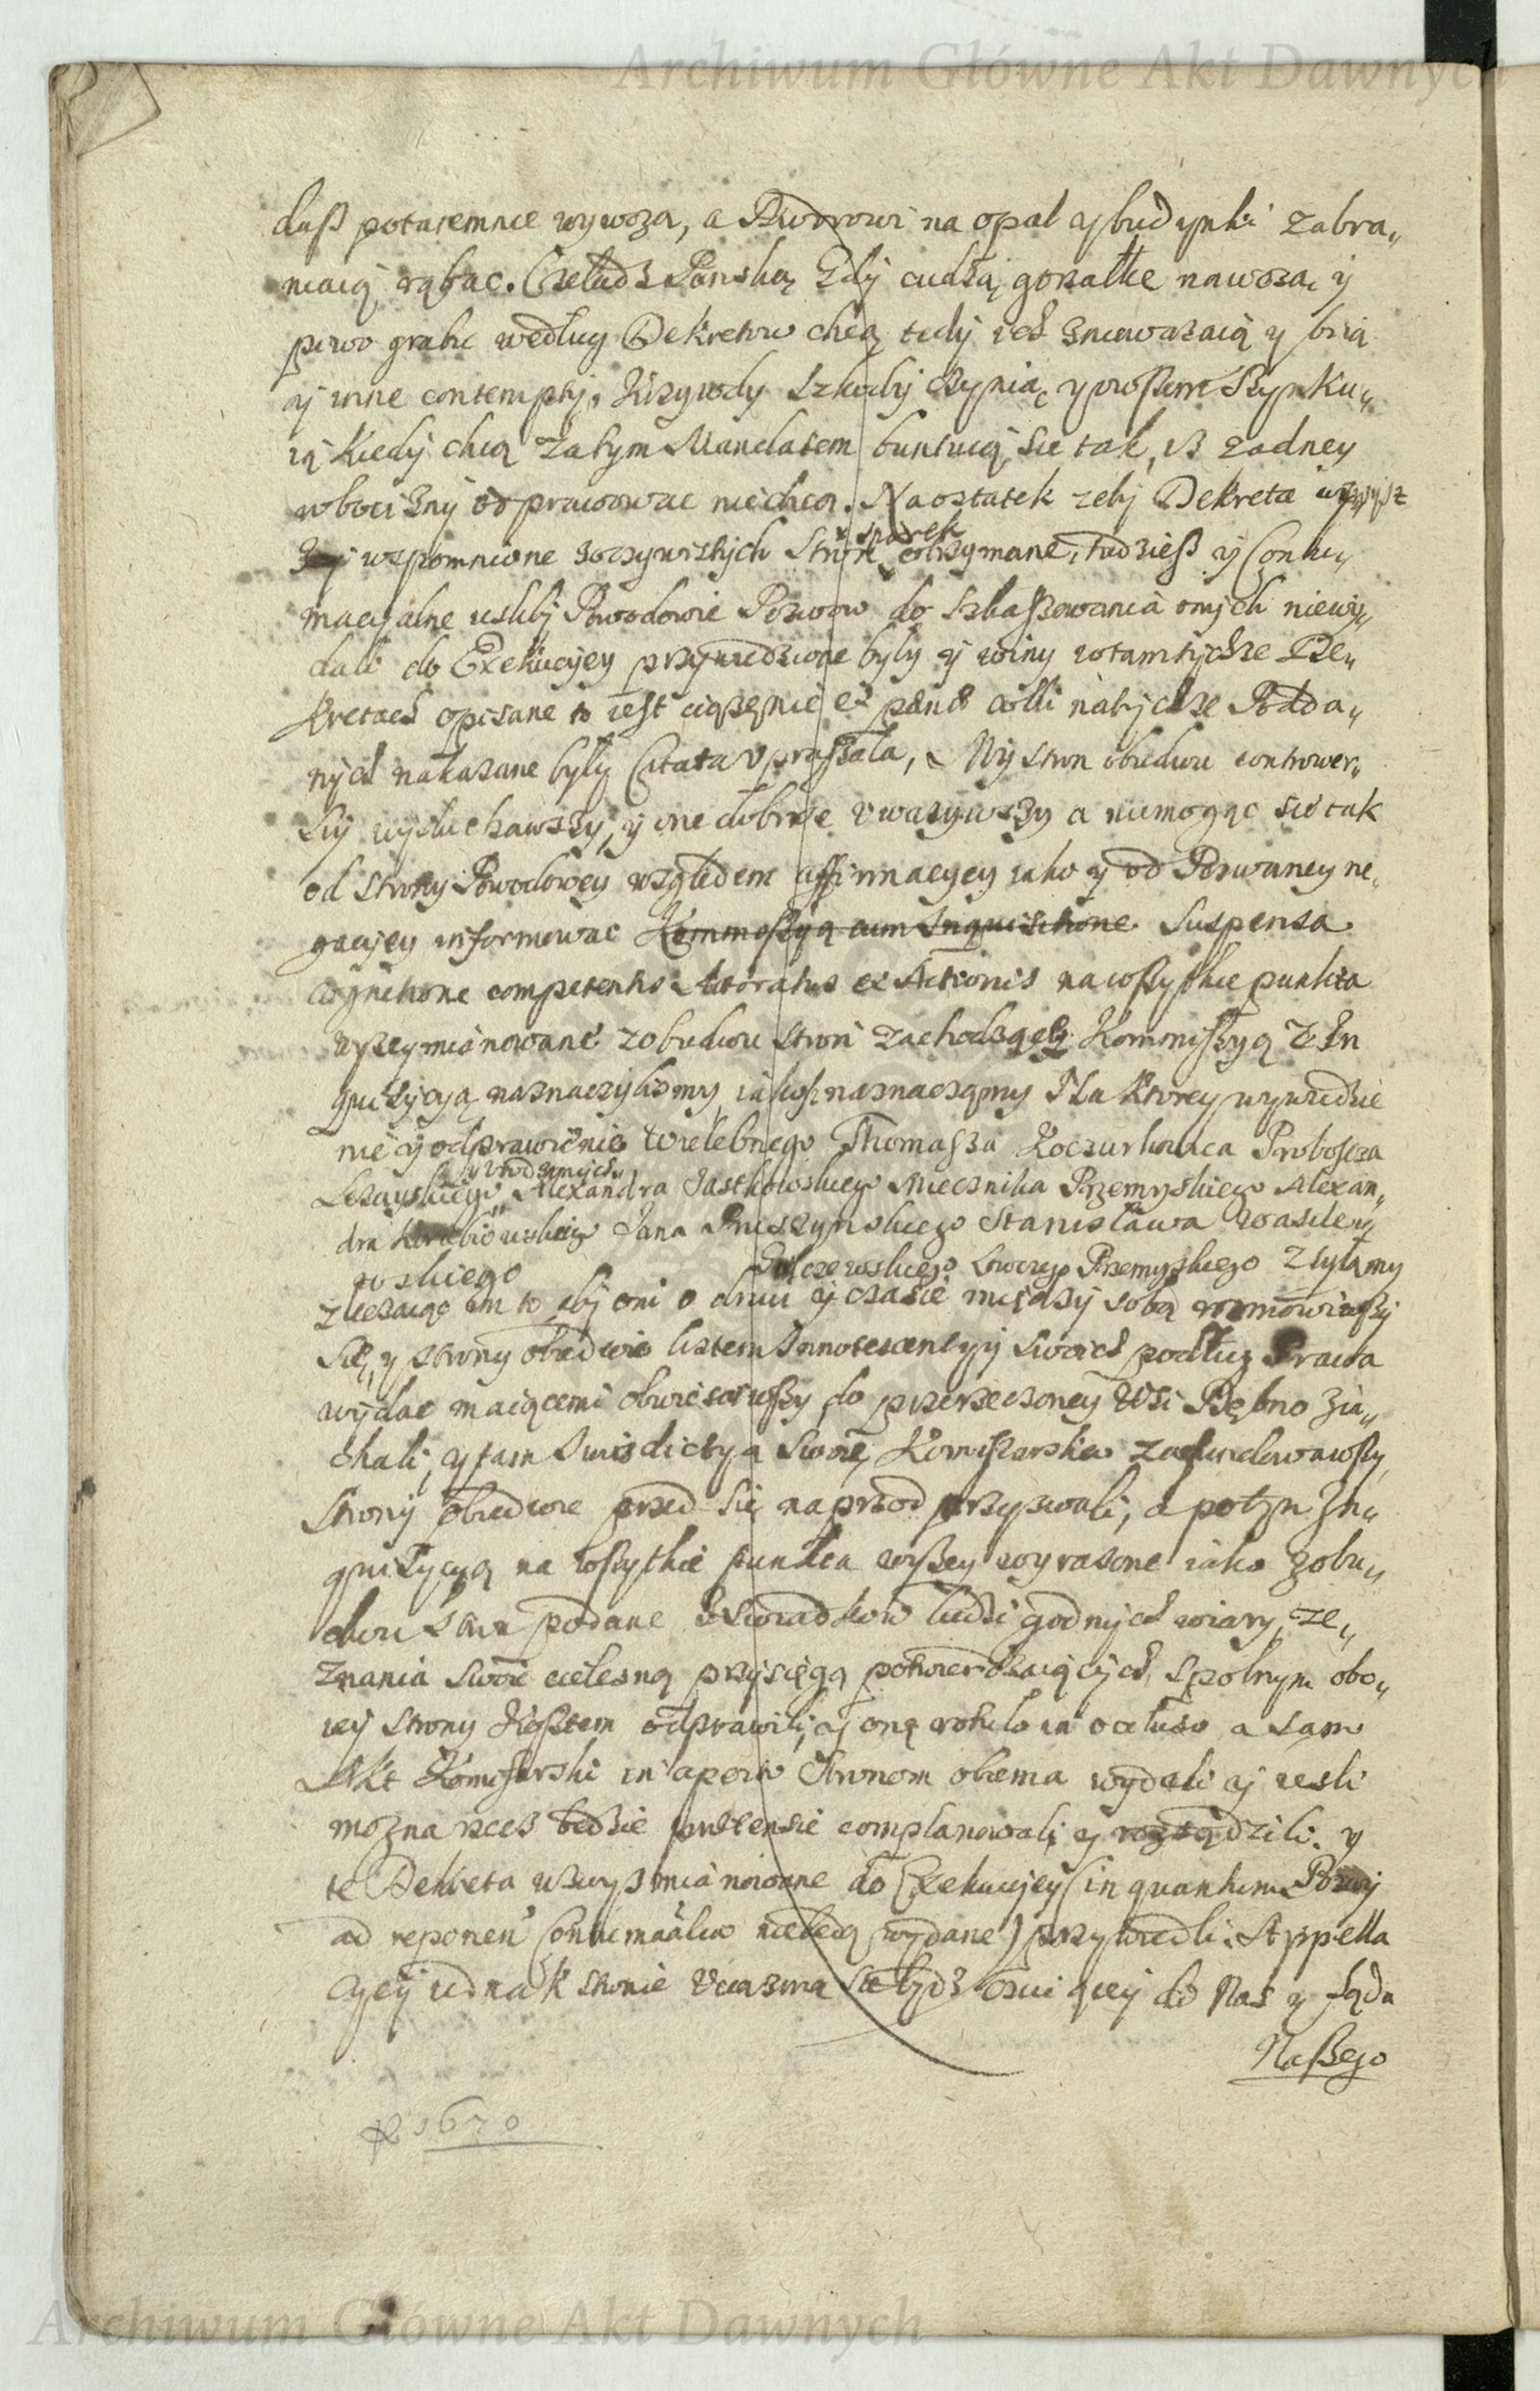 Archiwum Główne Akt Dawnych
daß potaiemnie wywożą, a Dworowi na opał y budynki zabra„
niaią rąbac. Czeladz Panską Gdy cudzą gorzałke nawożą y
piwo grabic według Dekretow chcą tedy ich zniewazaią y biią
y inne contempty, Krzywdy Szkody czynią, y prosem Szynku„
ią kiedy chcą zatym Mandatem buntuią sie tak, iß zadney
robocizny odprawowac niechcą. Naostatek zeby Dekreta
wspomnione zoczywistych Stron sparek otrzymane, tudzieß y Contu„
macyalne iesliby Powodowie Pozwow do Skassowania onych niewy„
dali do Exekucyey przywiedzione były y winy wtamtychze De„
kretach opisane to iest ciążęnie et pœna colli natychze Podda„
nych nakazane były Citata vpraszała, My stron obudwu contrower„
siy wysłuchawszy, y one dobrze vwazywszy a niemogąc sie tak
od strony Powodowey względem affirmacyey iako y od Pozwaney ne„
gacyey informowac Kommossyą cum Inquisitione Suspensa
cognitione competentis Actoratus et Actionis na wszystkie punkta
wyzeymianowane zobudwu stron zachodzące Kommissyą z In
quizycyą naznaczylismy, iakosz naznaczamy Na ktorey wywiedzie
nie y odprawienie Wielebnego Thomasza Koczurkowica Proboscza
Lezayskiego, Vrodzonych Alexandra Jastkowskiego Miecznika Przemyskiego Alexan„
dra Jana Pruszynskiego Stanisława Wasilew
wskiego Łowczego Przemyskiego Zsyłamy
zlecaiąc im to aby oni o dniu y czasie między sobą rozmowiwszy
się, y strony obiedwie listem Innotescentyy swoich podług Prawa
wydac maiącemi obwiesciwszy do przerzeczoney Wsi Dębno zia„
chali, y tam Jurisdictyą swoię Komisarską zafundowawszy,
Strony obiedwie przed się naprzod przyzwali, a potym In„
quizycyą na wszytkie punkta wyßey wyrazone iako zobu„
dwu stron podane z swiadkow ludzi godnych wiary, ze„
znania swoie cielesną przysięgą potwierdzaiących, spolnym obo„
iey strony Kosztem odprawili, y onę rotulo in occluso a sam
Akt Komisarski in aperto Stronom obiema wydali y iesli
można rzecz bedzie prætensie complanowali y rozsądzili. y
te Dekreta wzwyß mianowane do Exekucyey (in quantum Pozwy
ad reponen Contumacialia niebędą wydane) przywiedli. Appella
cyey iednak stronie Vciazona sie bydz czuiącey do Nas y sądu
Naßego
R 1670
Archiwum Główne Akt Dawnych